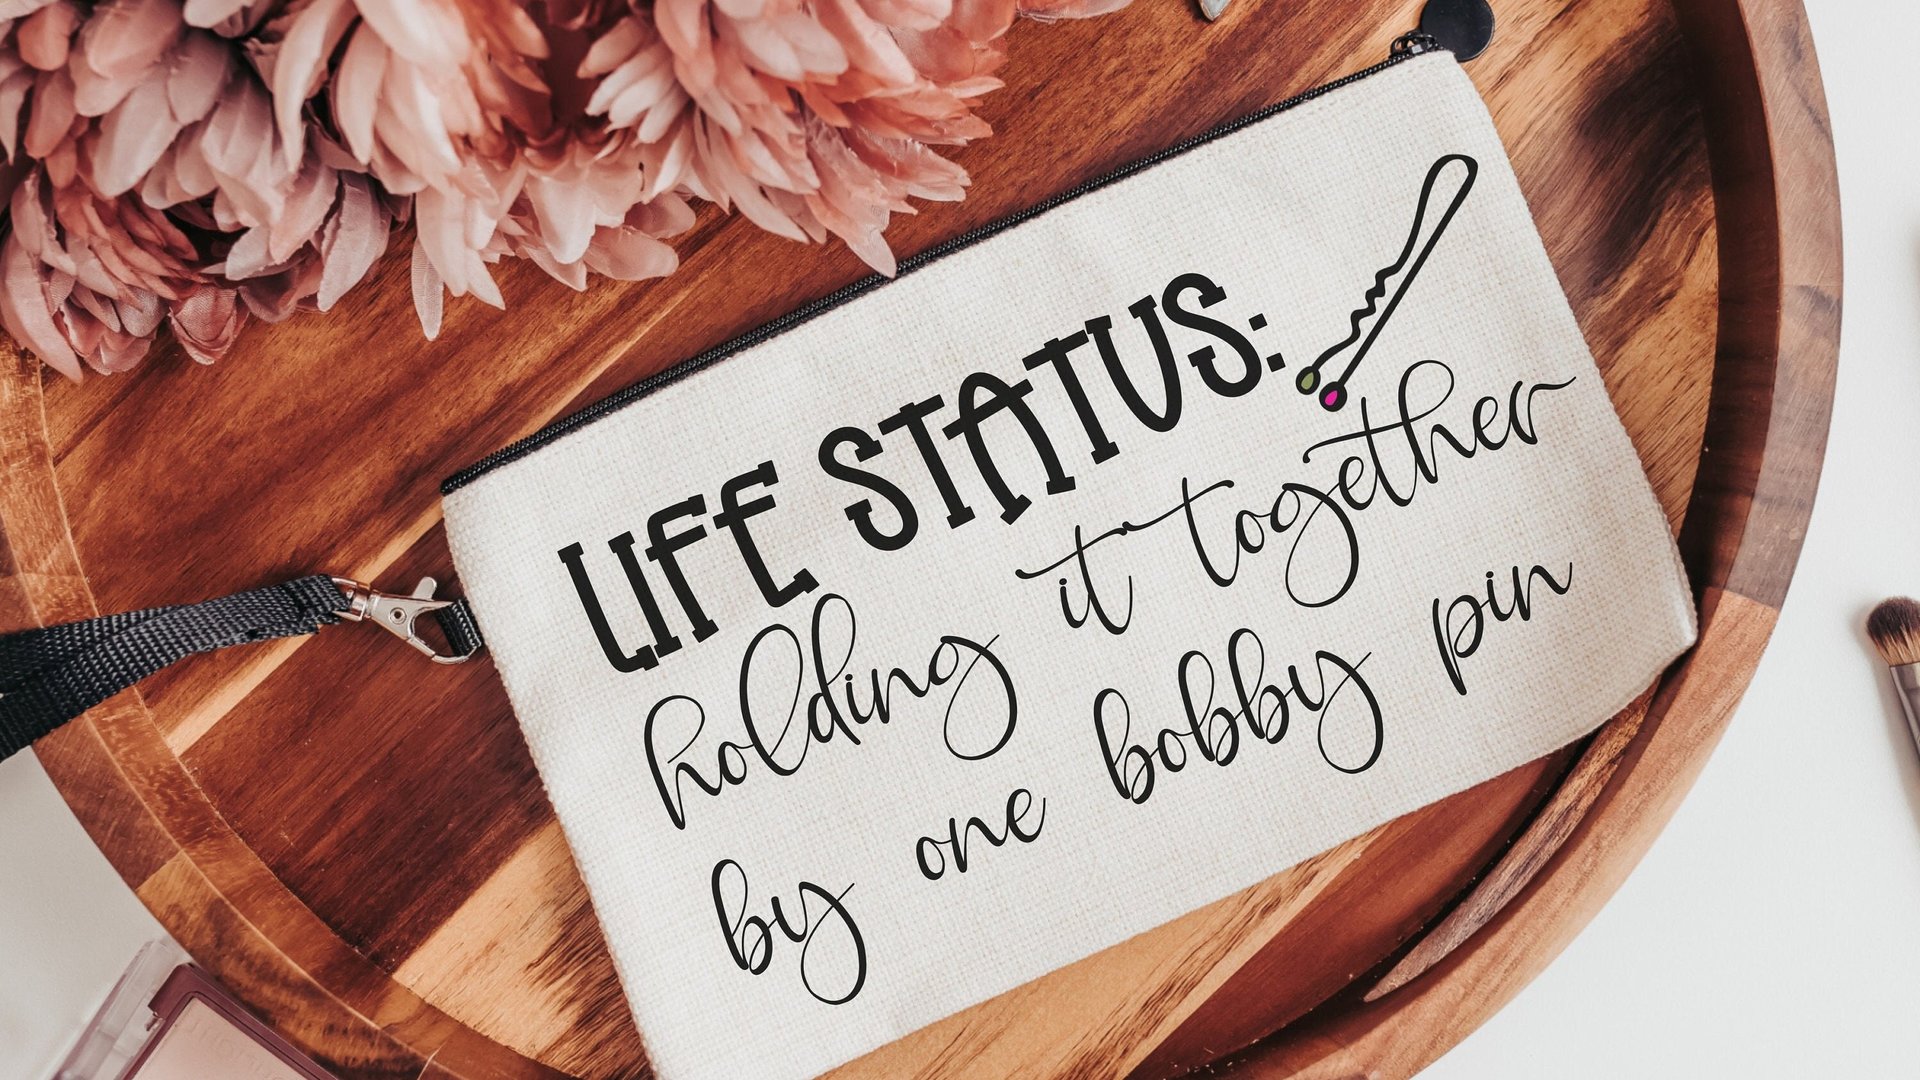 LIFE STATUS:
holding it together
by one bobby pin